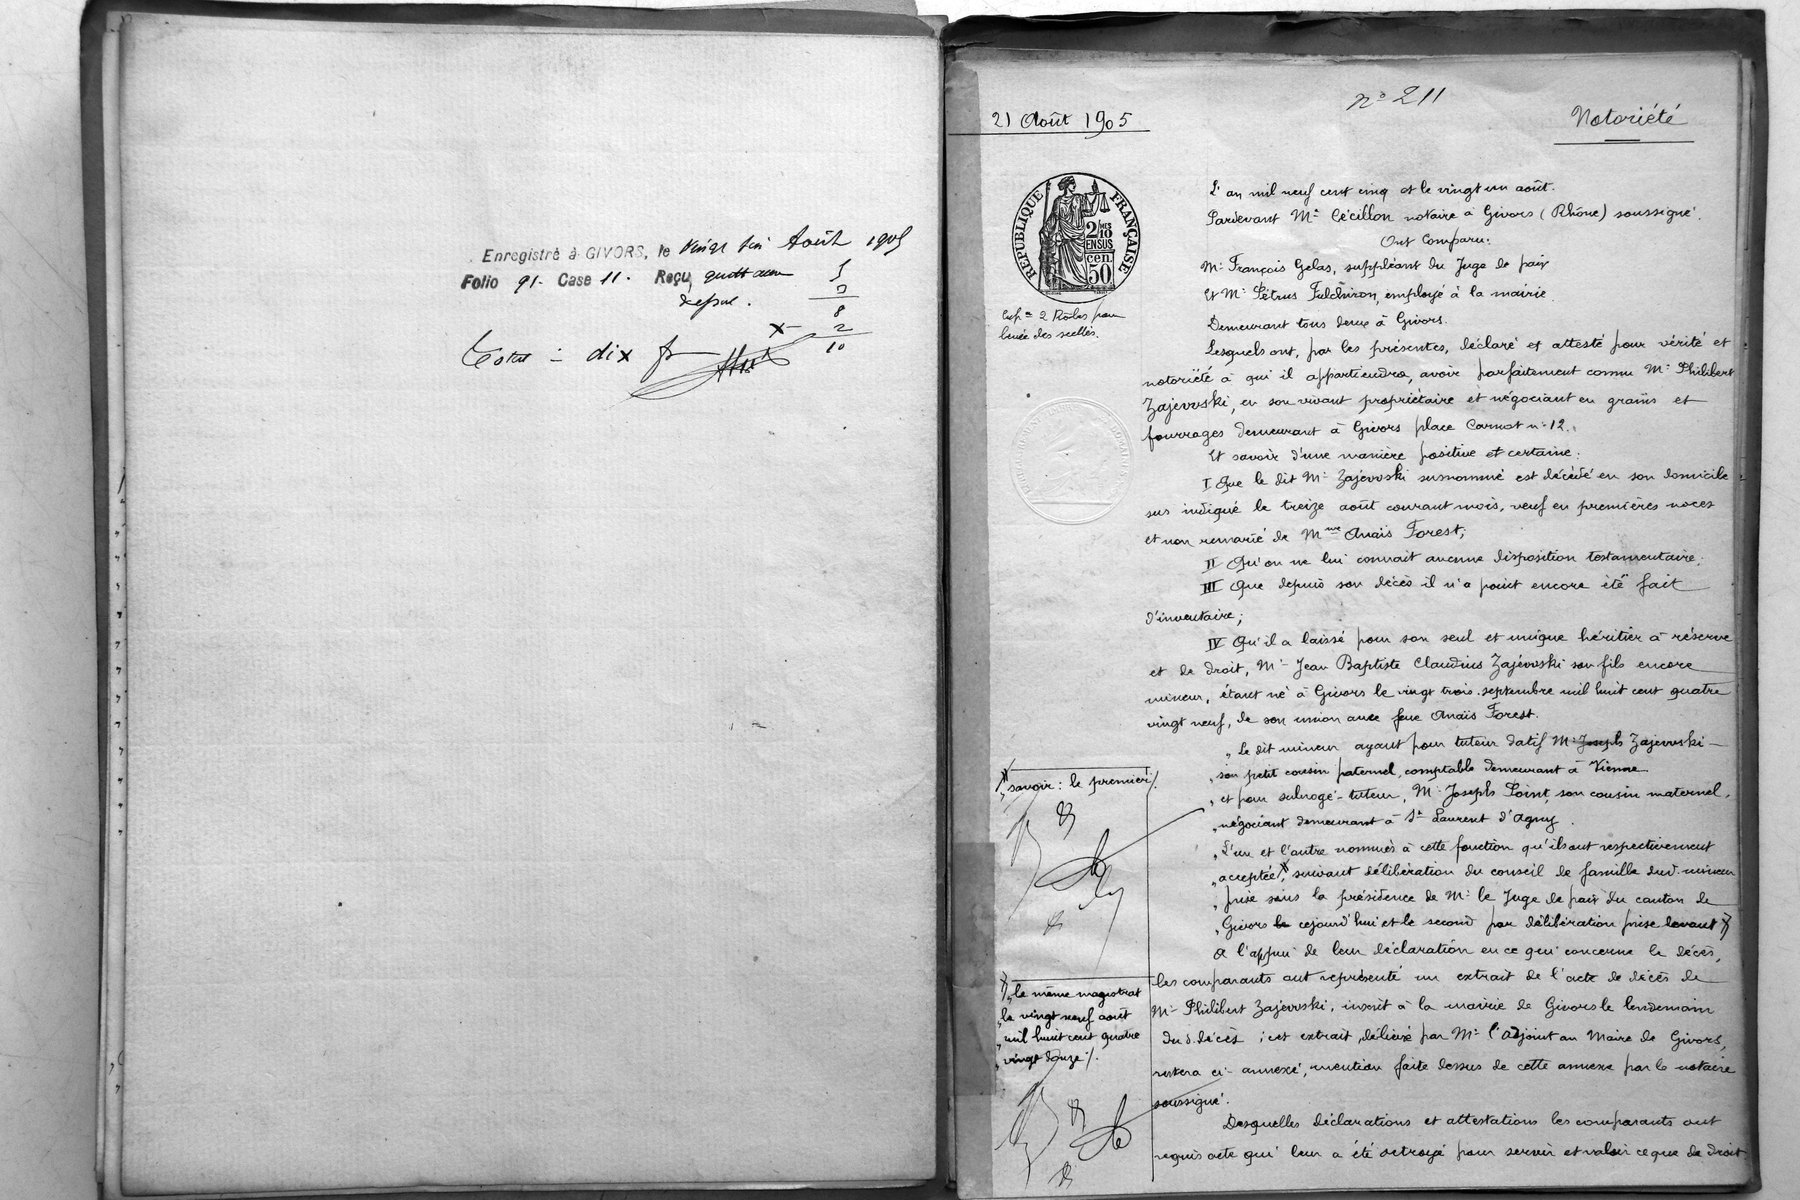 Enregistré à GIVORS, le vingt six Août 1905
Folio 91. Case 11. Reçu,
5
3
8
2
10
Total = dix f
n° 211
21 Août 1905
Notoriété
RÉPUBLIQUE FRANÇAISE
2/10 EN SUS
50 cen.
2 Rôles pour
levée des scellés.
L'an mil neuf cent cinq et le vingt un août.
Pardevant Me Cécillon notaire à Givors (Rhône) soussigné.
Ont Comparu:
Mr François Gelas, suppléant du Juge de paix
Et Mr Pétrus Fulchiron, employé à la mairie
Demeurant tous deux à Givors.
Lesquels ont, par les présentes, déclaré et attesté pour vérité et
notoriété à qui il appartiendra, avoir parfaitement connu Mr Philibert
Zajewski, en son vivant propriétaire et négociant en grains et
fourrages demeurant à Givors place Carnot n° 12.
Et savoir d'une manière positive et certaine:
I Que le dit Mr Zajéwski susnommé est décédé en son domicile
sus indiqué le treize août courant mois, veuf en premières noces
et non remarié de Mme Anaïs Forest;
II Qu'on ne lui connait aucune disposition testamentaire;
III Que depuis son décès il n'a point encore été fait
d'inventaire;
IV Qu'il a laissé pour son seul et unique héritier à réserve
et de droit, Mr Jean Baptiste Claudius Zajéwski son fils encore
mineur, étant né à Givors le vingt trois septembre mil huit cent quatre
vingt neuf, de son union avec feue Anaïs Forest.
" Le dit mineur ayant pour tuteur datif Mr Joseph Zajewski
" son petit cousin paternel, comptable demeurant à Vienne
" et pour subrogé-tuteur, Mr Joseph Point, son cousin maternel,
" négociant demeurant à St Laurent d'Agny.
" L'un et l'autre nommés à cette fonction qu'ils ont respectivement
" acceptée, suivant délibération du conseil de famille dud. mineur
" prise sous la présidence de Mr le Juge de paix du canton de
" Givors le cejourd'hui et le second par délibération prise devant
A l'appui de leur déclaration en ce qui concerne le décès,
les comparants ont représenté un extrait de l'acte de décès de
Mr Philibert Zajewski, inscrit à la mairie de Givors le lendemain
dud. décès; cet extrait, délivré par Mr l'adjoint au Maire de Givors,
restera ci-annexé, mention faite dessus de cette annexe par le notaire
soussigné.
Desquelles déclarations et attestations les comparants ont
requis acte qui leur a été octroyé pour servir et valoir ce que de droit
" savoir: le premier/.
" le même magistrat
" le vingt neuf août
" mil huit cent quatre
" vingt douze/.